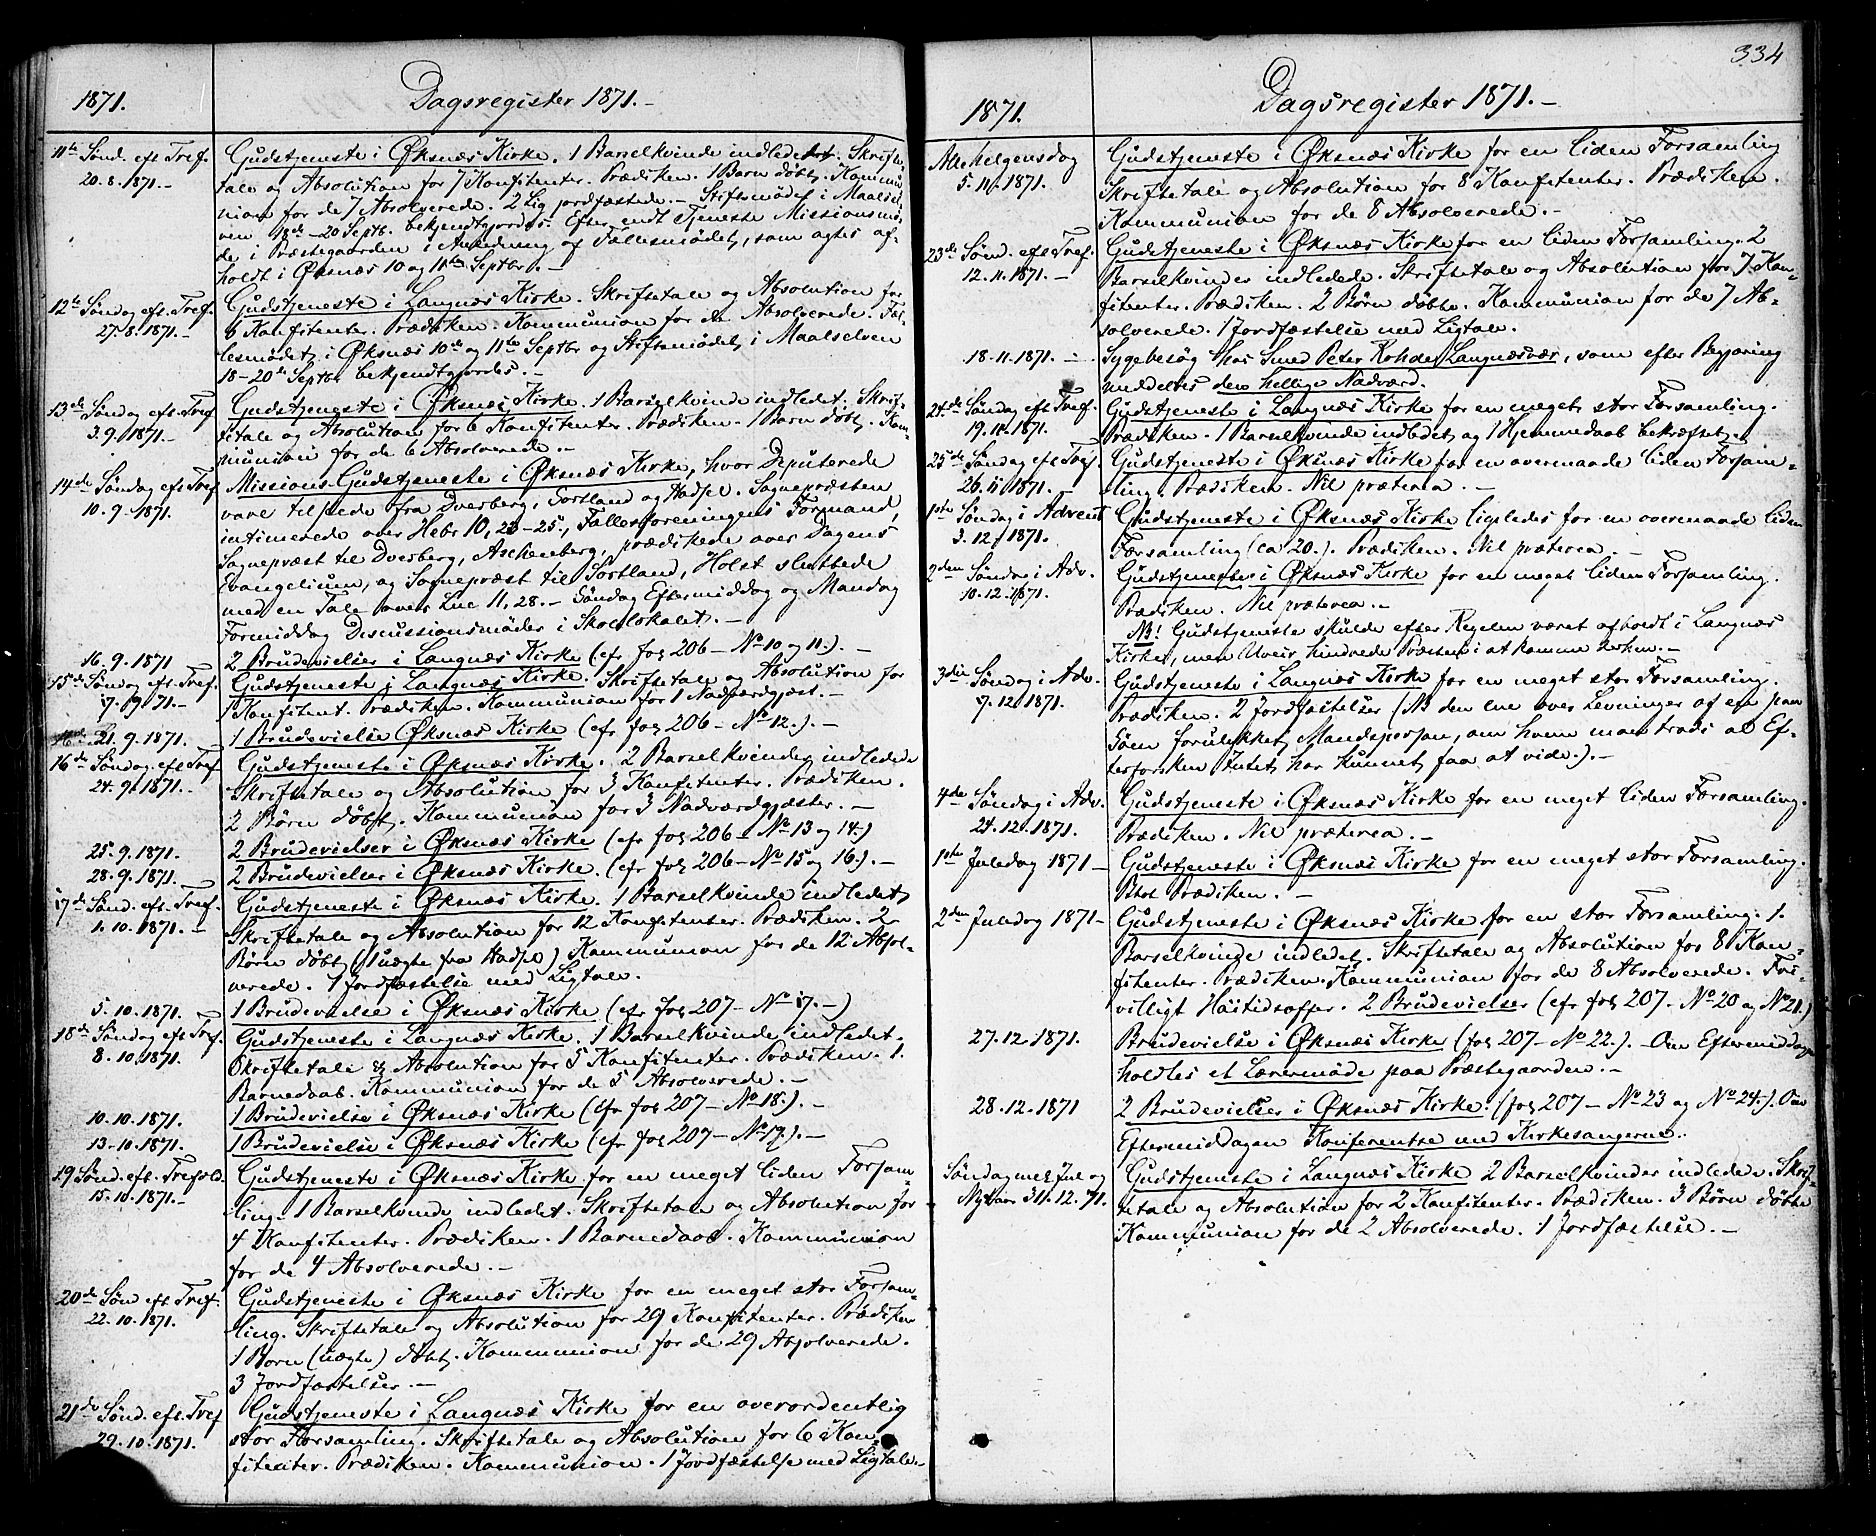 1871.
Dagsregister 1871.-
11te Sønd. eft Tref.
20.8.1871.-
Gudstjeneste i Øksnæs Kirke. 1 Barselkvinde indledet. Skrifte-
tale og Absolution for 7 Konfitenter. Prædiken. 1 Barn døbt. Kommu-
nion for de 7 Absolverede. 2 Lig jordfæstede.- Stiftsmødet i Maalsel-
ven 18de-20 Septb. bekjendtgjordes. Efter endt Tjeneste Missionsmø-
de i Præstegaarden i Anledning af Fællesmødet, som agtes af-
holdt i Øksnæs 10 og 11te Septbr.-
12te Søndag eft. Tref.
27.8.1871.-
Gudstjeneste i Langnæs Kirke. Skriftetale og Absolution for
6 Konfitenter. Prædiken. Kommunion for de Absolverede. Fæl-
lesmødet i Øksnæs 10de og 11te Septbr og Stiftsmødet i Maalselven
18-20de Septbr bekjendtgjordes.-
13de Søndag eft. Tref
3.9.1871.-
Gudstjeneste i Øksnæs Kirke. 1 Barselkvinde indledet. Skrif-
tetale og Absolution for 6 Konfitenter. Prædiken. 1 Barn døbt. Kom-
munion for de 6 Absolverede.-
14de Søndag eft Tref
10.9.1871.
Missions-Gudstjeneste i Øksnæs Kirke, hvor Deputerede
vare tilstede fra Dverberg, Sortland og Hadsel. Sognepræsten
intimerede over Hebr 10, 23-25, Fællesforeningens Formand,
Sognepræst til Dverberg, Aschenberg, prædikede over Dagens
Evangelium, og Sognepræst til Sortland, Holst sluttede
med en Tale over Luc 11, 28.- Søndag Eftermiddag og Mandag
Formiddag Discussionsmøder i Skolelokalet.-
16.9.1871
2 Brudevielser i Langnæs Kirke (cfr fol 206-No 10 og 11.).-
15de Søndag eft. Tref.
17.9.71.-
Gudstjeneste i Langnæs Kirke. Skriftetale og Absolution for
1 Konfitent. Prædiken. Kommunion for 1 Nadverdgjest.-
21.9.1871.
1 Brudevielse Øksnæs Kirke (cfr fol 206-No 12.).-
16de Søndag eft Tref
24.9.1871.-
Gudstjeneste i Øksnæs Kirke. 2 Barselkvinder indledede
Skriftetale og Absolution for 3 Konfitenter. Prædiken.
2 Børn døbt. Kommunion for 3 Nadverdgjæster.-
25.9.1871.
2 Brudevielser i Øksnæs Kirke (cfr fol 206-No 13 og 14.)
28.9.1871.
2 Brudevielser i Øksnæs Kirke. (cfr fol 206-No 15 og 16.).-
17de Sønd. eft. Tref.
1.10.1871.-
Gudstjeneste i Øksnæs Kirke. 1 Barselkvinde indledet,
Skriftetale og Absolution for 12 Konfitenter. Prædiken. 2
Børn døbt (1 uægte fra Hadsel) Kommunion for de 12 Absol-
verede. 1 Jordfæstelse med Ligtale.
5.10.1871.
1 Brudevielse i Øksnæs Kirke (cfr fol 207-No 17.-)
18de Søndag eft Tref.
8.10.1871.
Gudstjeneste i Langnæs Kirke. 1 Barselkvinde indledet.
Skriftetale & Absolution for 5 Konfitenter. Prædiken. 1.
Barnedaab. Kommunion for de 5 Absolverede.-
10.10.1871.
1 Brudevielse i Øksnæs Kirke (cfr fol 207-No 18.).-
13.10.1871.
1 Brudevielse i Øksnæs Kirke (cfr fol 207-No 19.).-
19 Sønd. eft. Trefold.
15.10.1871.-
Gudstjeneste i Øksnæs Kirke for en meget liden Forsam-
ling. 1 Barselkvinde indledet. Skriftetale og Absolution for
4 Konfitenter. Prædiken. 1 Barnedaab. Kommunion
for de 4 Absolverede.-
20de Sønd eft Tref.
22.10.1871.
Gudstjeneste i Øksnæs Kirke for en meget stor Forsam-
ling. Skriftetale og Absolution for 29 Konfitenter. Prædiken
1 Barn (uægte) døbt. Kommunion for de 29 Absolverede.
3 Jordfæstelser.-
21de Sønd. eft. Tref
29.10.1871.
Gudstjeneste i Langnæs Kirke for en overordentlig
stor Forsamling. Skriftetale og Absolution for 6 Kon-
fitenter. Prædiken. Kommunion. 1 Jordfæstelse med Ligtale.-
334
1871.
Dagsregister 1871.-
Allehelgensdag
5.11.1871.
Gudstjeneste i Øksnæs Kirke for en liden Forsamling
Skriftetale og Absolution for 8 Konfitenter. Prædiken.
Kommunion for de 8 Absolverede.-
23de Sønd. eft Tref.
12.11.1871.-
Gudstjeneste i Øksnæs Kirke for en liden Forsamling. 2
Barselkvinder indledede. Skriftetale og Absolution for 7 Kon-
fitenter. Prædiken. 2 Børn døbte. Kommunion for de 7 Ab-
solverede. 1 Jordfæstelse med Ligtale.
18.11.1871.-
Sygebesøg hos Smed Peter Rohde, Langnæsvær, som efter Begjæring
meddeltes den hellige Nadværd.
24de Søndag eft Tref.
19.11.1871.
Gudstjeneste i Langnæs Kirke for en meget stor Forsamling.
Prædiken. 1 Barselkvinde indledet, og 1 Hjemmedaab bekræftet.
25de Søndag eft Tref.
26.11.1871.-
Gudstjeneste i Øksnæs Kirke for en overmaade liden Forsam-
ling. Prædiken. Nil præterea.-
1ste Søndag i Advent
3.12.1871.
Gudstjeneste i Øksnæs Kirke ligeledes for en overmaade liden
Forsamling (ca 20.). Prædiken. Nil præterea.-
2den Søndag i Adv.
10.12.1871.
Gudstjeneste i Øksnæs Kirke for en meget liden Forsamling.
Prædiken. Nil præterea.-
NB! Gudstjeneste skulde efter Regelen været afholdt i Langnæs
Kirke, men Uveir hindrede Præsten i at komme derhen.-
3die Søndag i Adv.
17.12.1871.
Gudstjeneste i Langnæs Kirke for en meget stor Forsamling.
Prædiken. 2 Jordfæstelser (NB den ene over Levninger af en paa
Søen forulykket Mandsperson, om hvem man trods al Ef-
terforsken Intet har kunnet faa at vide.).-
4de Søndag i Adv.
24.12.1871.
Gudstjeneste i Øksnæs Kirke for en meget liden Forsamling.
Prædiken. Nil præterea.-
1ste Juledag 1871-
Gudstjeneste i Øksnæs Kirke for en meget stor Forsamling.
Prædiken.-
2den Juledag 1871-
Gudstjeneste i Øksnæs Kirke for en stor Forsamling. 1.
Barselkvinde indledet. Skriftetale og Absolution for 8 Kon-
fitenter. Prædiken. Kommunion for de 8 Absolverede. Fri-
villigt Høitidsoffer. 2 Brudevielser (cfr fol 207-No 20 og No 21.)
27.12.1871.
Brudevielse i Øksnæs Kirke (fol 207-No 22.).-Om Eftermiddagen
holdtes et Læremøde paa Præstegaarden.-
28.12.1871
2 Brudevielser i Øksnæs Kirke. (fol 207-No 23 og No 24.). Om
Eftermiddagen Konferentse med Kirkesangerne.
Søndag mel Jul og
Nytaar 31.12.71.
Gudstjeneste i Langnæs Kirke 2 Barselkvinder indledede. Skrif-
tetale og Absolution for 2 Konfitenter. Prædiken. 3 Børn døbte
Kommunion for de 2 Absolverede. 1 Jordfæstelse.-